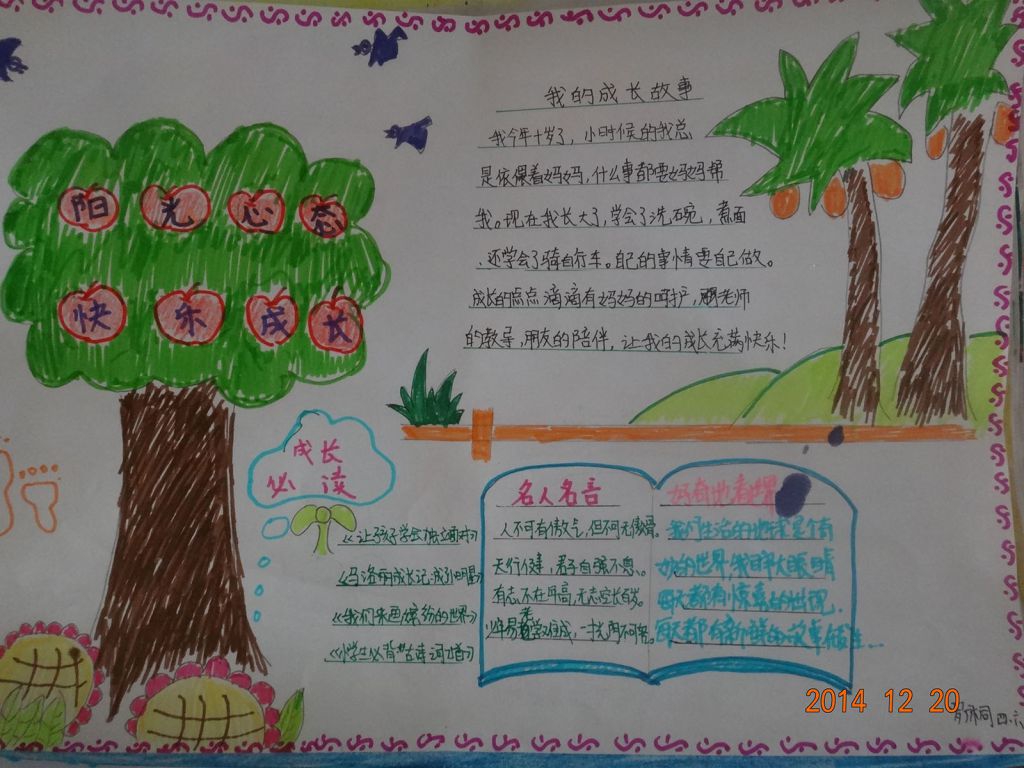 阳光心态
快乐成长
我的成长故事
我今年十岁了，小时候的我总
是依偎着妈妈，什么事都要妈妈帮
我。现在我长大了，学会了洗碗，煮面
、还学会了骑自行车。自己的事情要自己做。
成长的点点滴滴有妈妈的呵护，老师
的教导，朋友的陪伴，让我的成长充满快乐！
成长
必读
《让孩子学会独立》
《马洛丽成长记·我是小明星》
《我们来画缤纷的世界》
《小学生必背古诗词》
名人名言
人不可有傲气，但不可无傲骨。
天行健，君子自强不息。
有志不在年高，无志空长百岁。
少年易老学难成，一寸光阴不可轻。
好奇地看世界
我们生活的地球是个奇
妙的世界，我睁大眼睛
每天都有惊喜的发现.
每天都有新鲜的故事发生…
2014 12 20
四.六